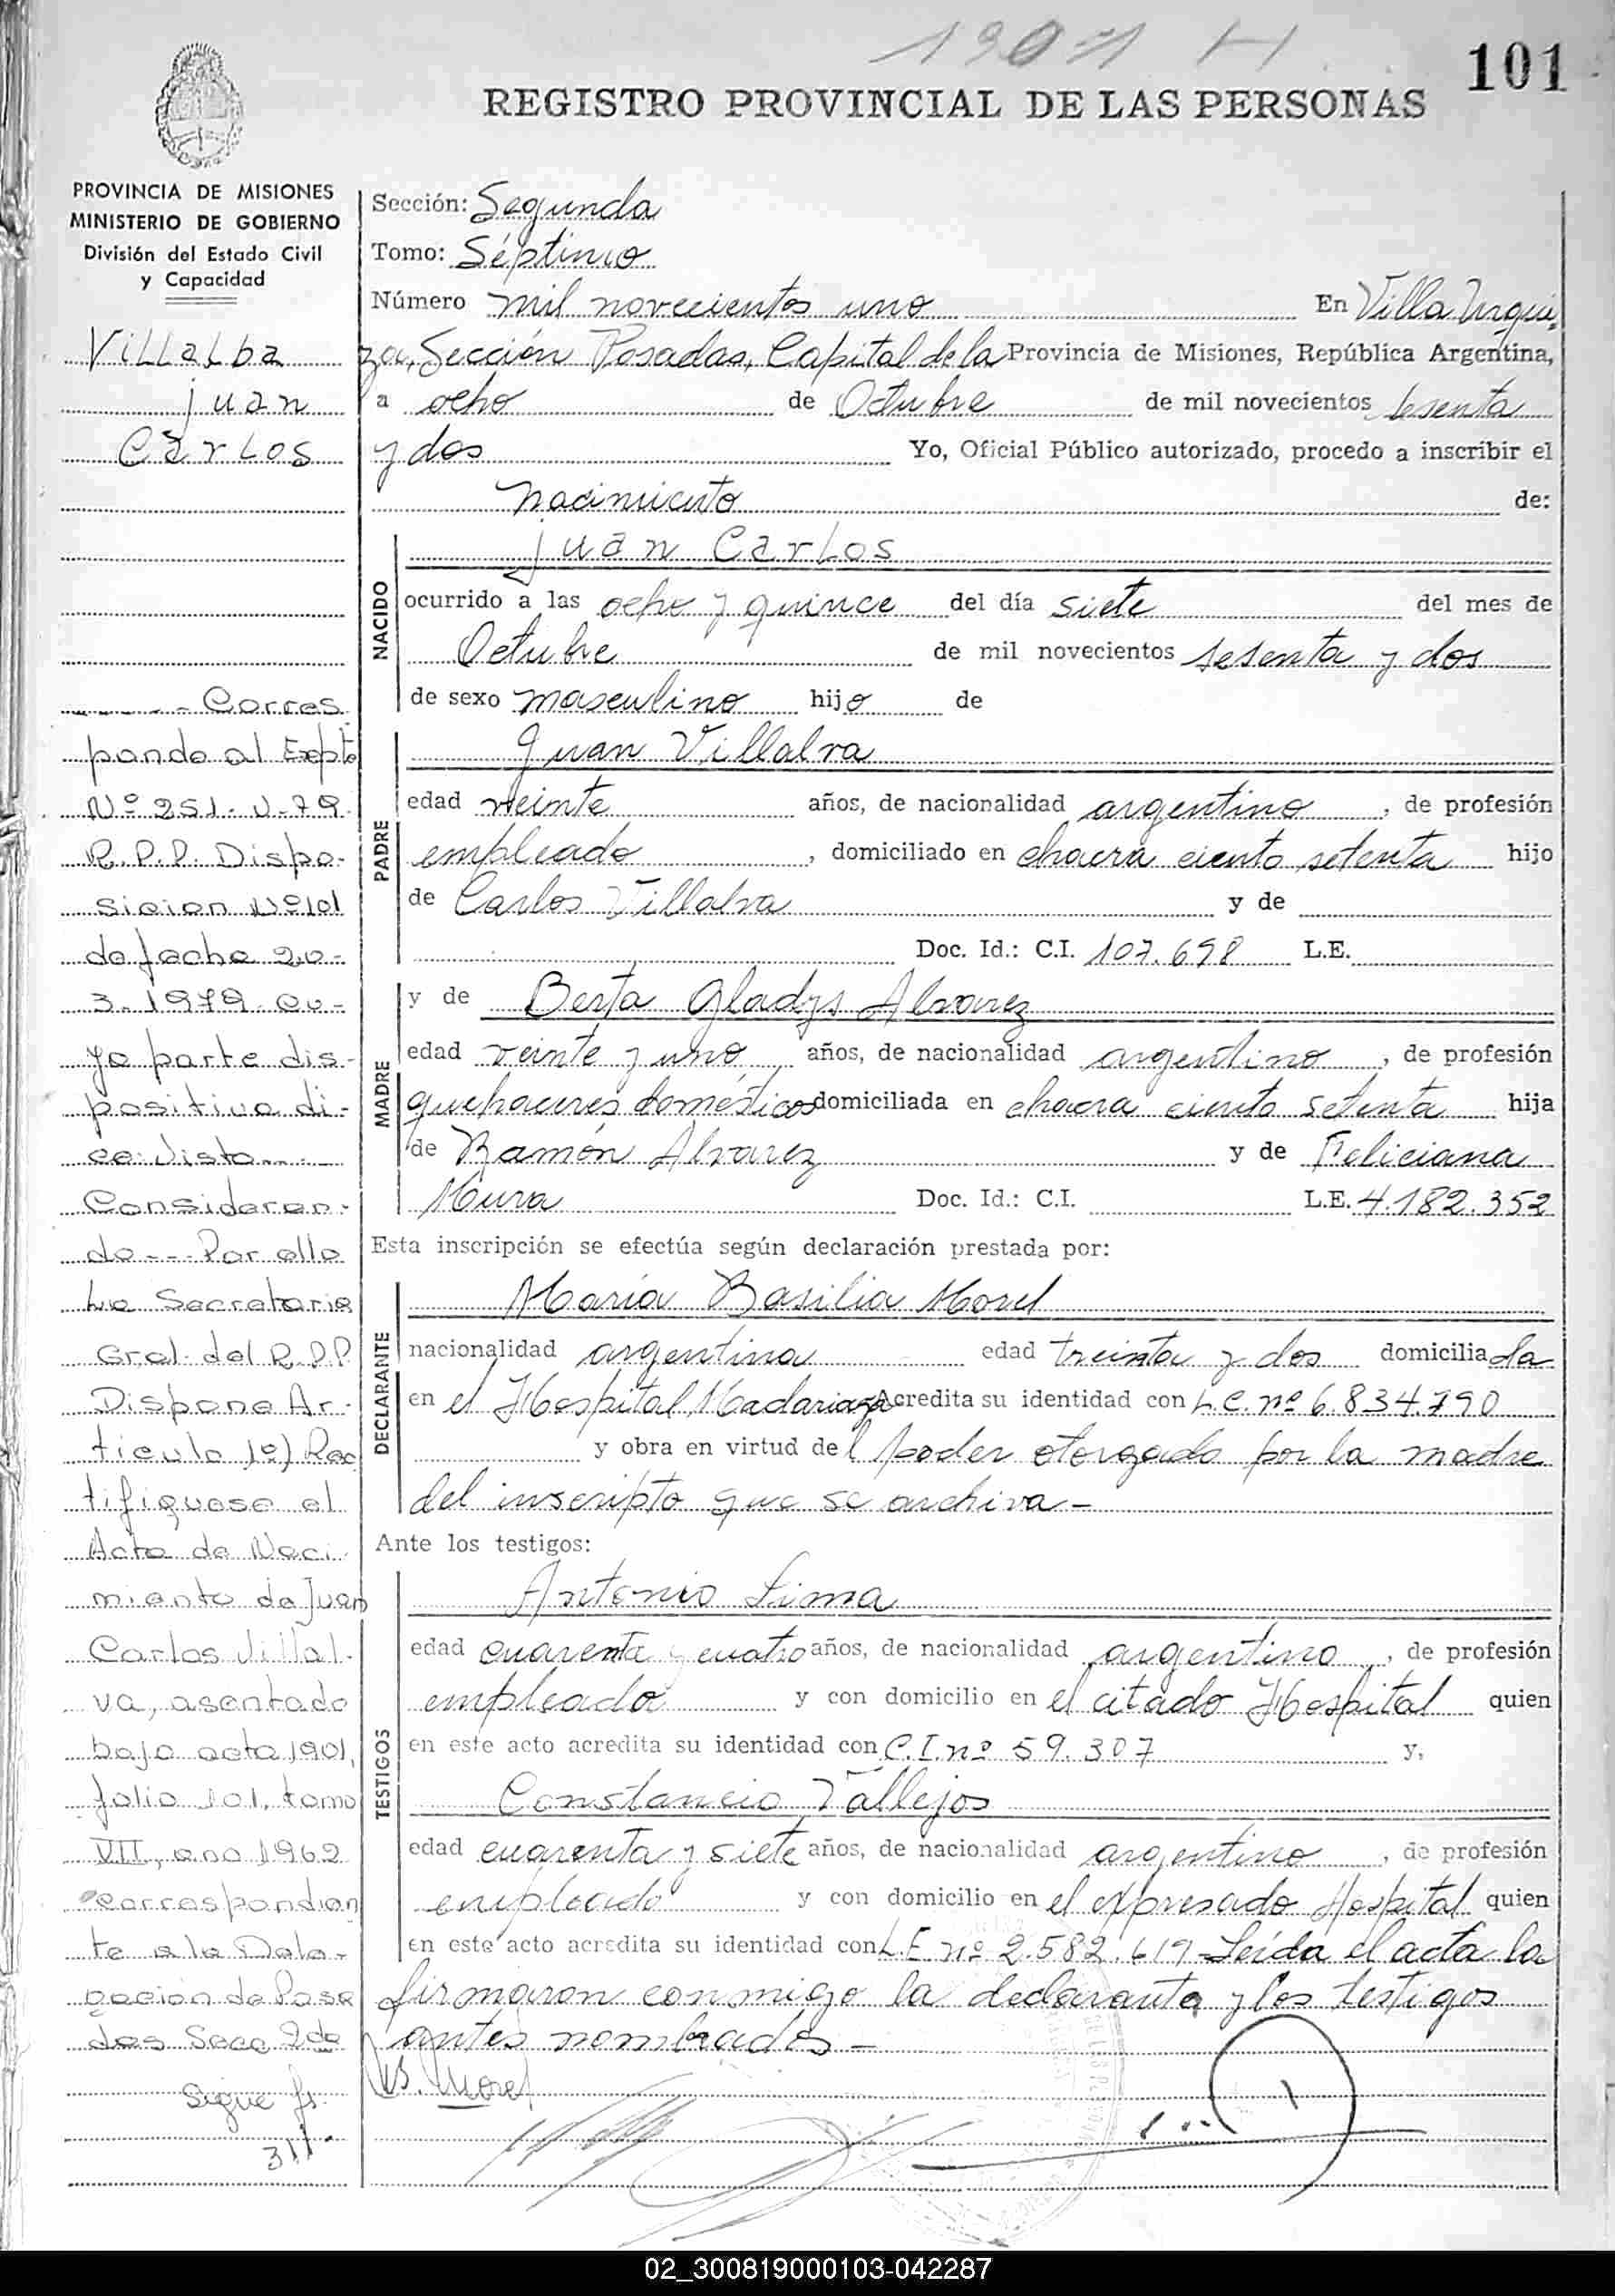 1901 H
101
REGISTRO PROVINCIAL DE LAS PERSONAS
PROVINCIA DE MISIONES
MINISTERIO DE GOBIERNO
División del Estado Civil
y Capacidad
Villalba
Juan
Carlos
----- Corres
ponde al Expte
Nº 251-V-79
R.P.P. Dispo-
sicion Nº101
de fecha 20-
3-1979 cu-
ya parte dis-
positiva di-
ce: Visto...
Consideran-
do --- Por ello
La Secretaria
Gral. del R.P.P.
Dispone Ar-
ticulo 1º) Rec
tifiquese el
Acta de Naci-
miento de Juan
Carlos Villal-
va, asentado
bajo acta 1901,
folio 101, tomo
VII, ano 1962
correspondien
te a la Dele-
gacion de Posa
das Secc 2da
Sigue fs.
311-
Sección: Segunda
Tomo: Séptimo
Número mil novecientos uno En Villa Urqui
za, Sección Posadas, Capital de la Provincia de Misiones, República Argentina,
a ocho de Octubre de mil novecientos sesenta
y dos Yo, Oficial Público autorizado, procedo a inscribir el
nacimiento de:
NACIDO
Juan Carlos
ocurrido a las ocho y quince del día siete del mes de
Octubre de mil novecientos sesenta y dos
de sexo masculino hijo de
PADRE
Juan Villalva
edad veinte años, de nacionalidad argentino, de profesión
empleado, domiciliado en chacra ciento setenta hijo
de Carlos Villalva y de
Doc. Id.: C.I. 107.698 L.E.
MADRE
y de Berta Gladys Alvarez
edad veinte y uno años, de nacionalidad argentino, de profesión
quehaceres domésticos domiciliada en chacra ciento setenta hija
de Ramón Alvarez y de Feliciana
Mura Doc. Id.: C.I. L.E. 4.182.352
Esta inscripción se efectúa según declaración prestada por:
DECLARANTE
María Basilia Morel
nacionalidad argentina edad treinta y dos domiciliada
en el Hospital Madariaga Acredita su identidad con L.C. nº 6.834.790
y obra en virtud del poder otorgado por la madre
del inscripto que se archiva-
Ante los testigos:
TESTIGOS
Antonio Lima
edad cuarenta y cuatro años, de nacionalidad argentino, de profesión
empleado y con domicilio en el citado Hospital quien
en este acto acredita su identidad con C.I. nº 59.307 y,
Constancio Vallejos
edad cuarenta y siete años, de nacionalidad argentino, de profesión
empleado y con domicilio en el expresado Hospital quien
en este acto acredita su identidad con L.E nº 2.582.619-Leída el acta la
firmaron conmigo la declarante y los testigos
antes nombrados-
B. Morel
02_300819000103-042287